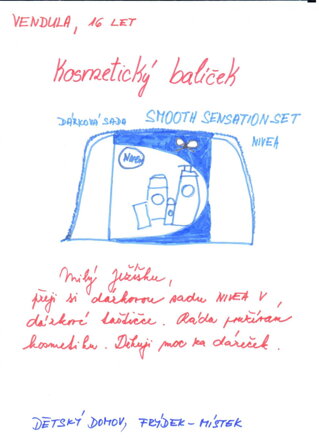 VENDULA, 16 LET
Kosmetický balíček
DÁRKOVÁ SADA SMOOTH SENSATION-SET
NIVEA
NIVEA
Milý Ježíšku,
přeji si dárkovou sadu NIVEA V
dárkové taštičce. Ráda používam
kosmetiku. Děkuji moc za dáreček.
DĚTSKÝ DOMOV, FRÝDEK-MÍSTEK